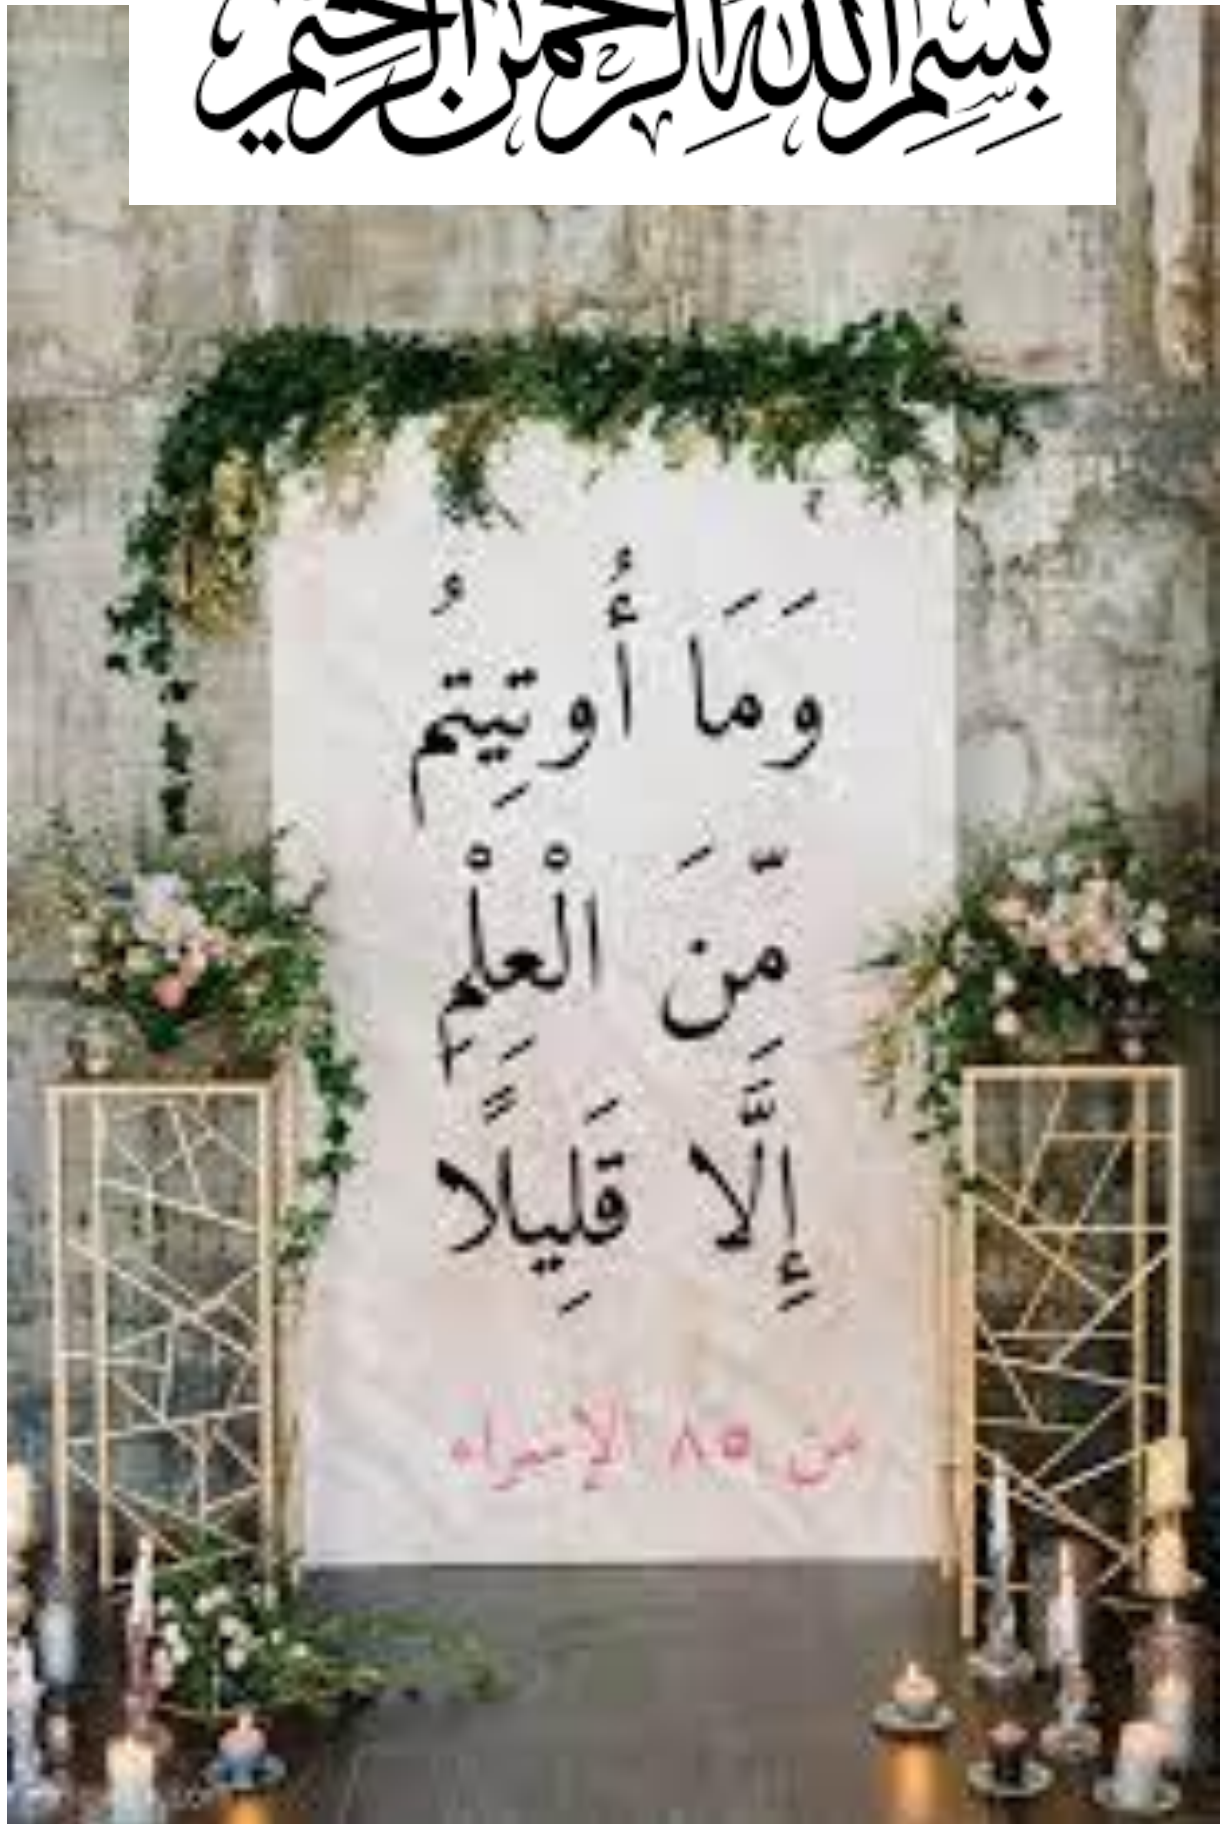 بِسْمِ اللَّهِ الرَّحْمَنِ الرَّحِيمِ
وَمَا أُوتِيتُم
مِّنَ الْعِلْمِ
إِلَّا قَلِيلًا
من ٨٥ الإسراء